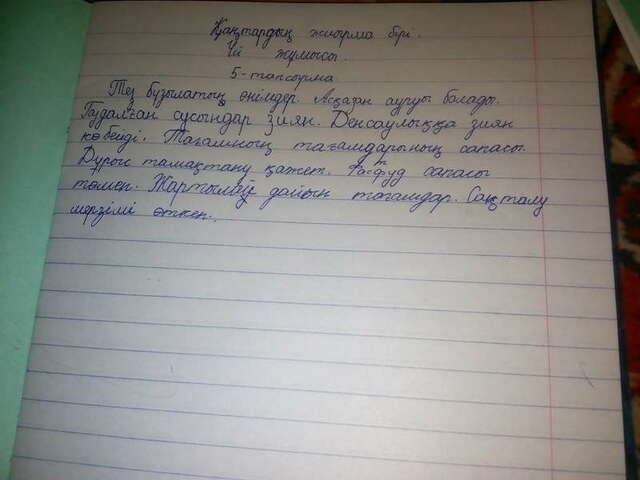 Қаңтардың жиырма бірі.
Үй жұмысы.
5-тапсырма
Тез бұзылатың өнімдер. Асқазан ауруы болады.
Газдалған сусындар зиян. Денсаулыққа зиян
көбейді. Тағамның тағамдарының сапасы.
Дұрыс тамақтану қажет. Фасфуд сапасы
төмен. Жартылай дайын тағамдар. Сақталу
мерзімі өткен.